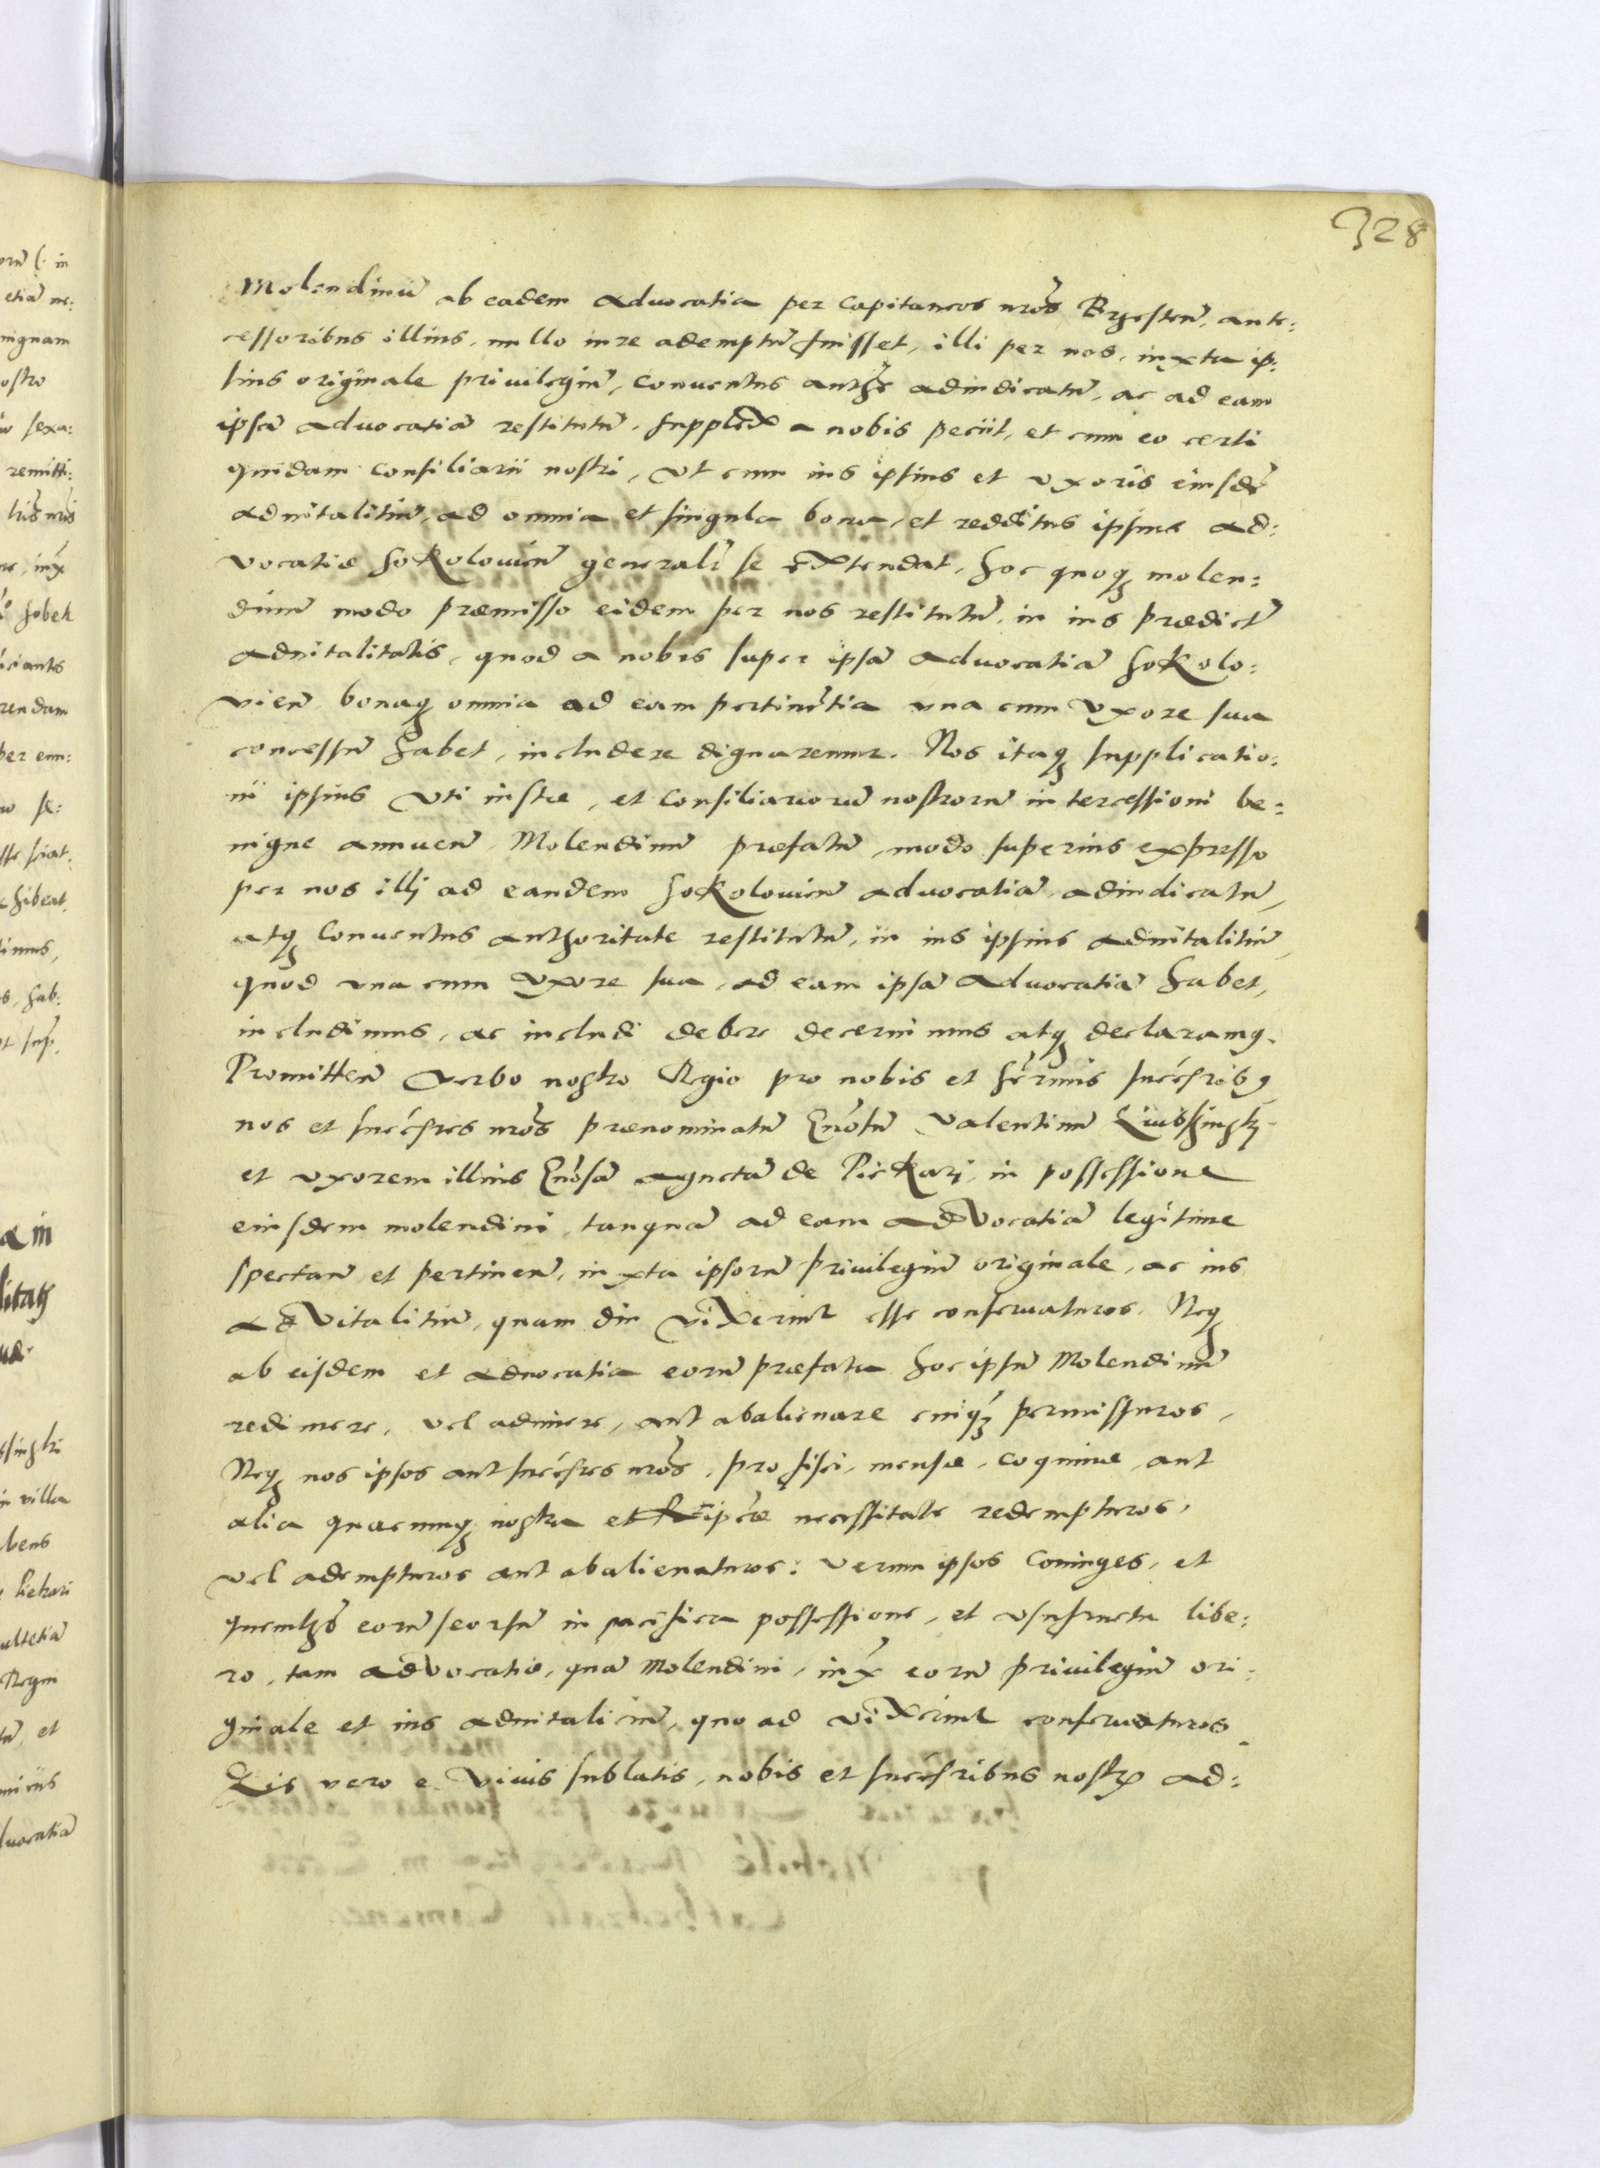 328
Molendinū ab eadem Advocatia per Capitaneos nrōs Brzesteñ, ante:
cessoribus illius, nullo iure ademptū fuisset, illi per nos, iuxta ip:
sius originale privilegiū, Conventus auth̄e adiudicatū, ac ad eam
ipsā Advocatiā restitutū, a nobis peciit, et cum eo certi
quidam Consiliarii nostri, Vt cum ius ipsius et Vxoris eiusdē
advitalitiū, ad omnia et singula bona, et redditus ipsius Ad:
vocatiæ Sokolovieñ generalr̄ se extendat, hoc quoqz molen:
dinū modo præmisso eidem per nos restitutū, in ius prædictū
advitalitatis, quod a nobis super ipsā Advocatiā Sokolo:
vieñ bonaqz omnia ad eam pertinētia vna cum Vxore sua
concessū habet, includere dignaremur. Nos itaqz supplicatio:
ni ipsius Vti iustæ, et Consiliariorū nostrorū intercessioni be:
nigne annueñ Molendinū præfatū, modo superius expresso
per nos illj ad eandem Sokolovieñ Advocatiā adiudicatū,
atqz Conventus authoritate restitutū, in ius ipsius advitalitiū,
quod vna cum Vxore sua, ad eam ipsā Advocatiā habet,
includimus, ac includi debere decernimus atqz declaramq.
Promitteñ Verbo nostro Regio pro nobis et Sērmis succ̄esribq
nos et succ̄esres nrōs prænominatū Valentinū
et Vxorem illius Agnetā de Piekarj, in possessione
eiusdem molendini, tanquā ad eam Advocatiā legitime
spectañ et pertineñ, iuxta ipsorū privilegiū originale, ac ius
Advitalitiū, quam diu Vixerint esse conservaturos. Neqz
ab eisdem et Advocatia eorū præfata hoc ipsū Molendinū
redimere, vel adimere, aut abalienare cuiqz permissuros,
Neqz nos ipsos aut succ̄esres nrōs, pro fisci, mensæ, coquinæ, aut
alia quacunqz nostra et Reipc̄æ necessitate redempturos,
vel adempturos aut abalienaturos: Verum ipsos Coniuges, et
quemlibet eorū seorsū in pacifica possessione, et vsufructu libe:
ro, tam Advocatiæ, quā Molendini, iux̄ eorū privilegiū ori:
ginale et ius advitaliciū, quo ad Vixerint conservaturos.
Eis vero e Vivis sublatis, nobis et succ̄esribus nostris ad: